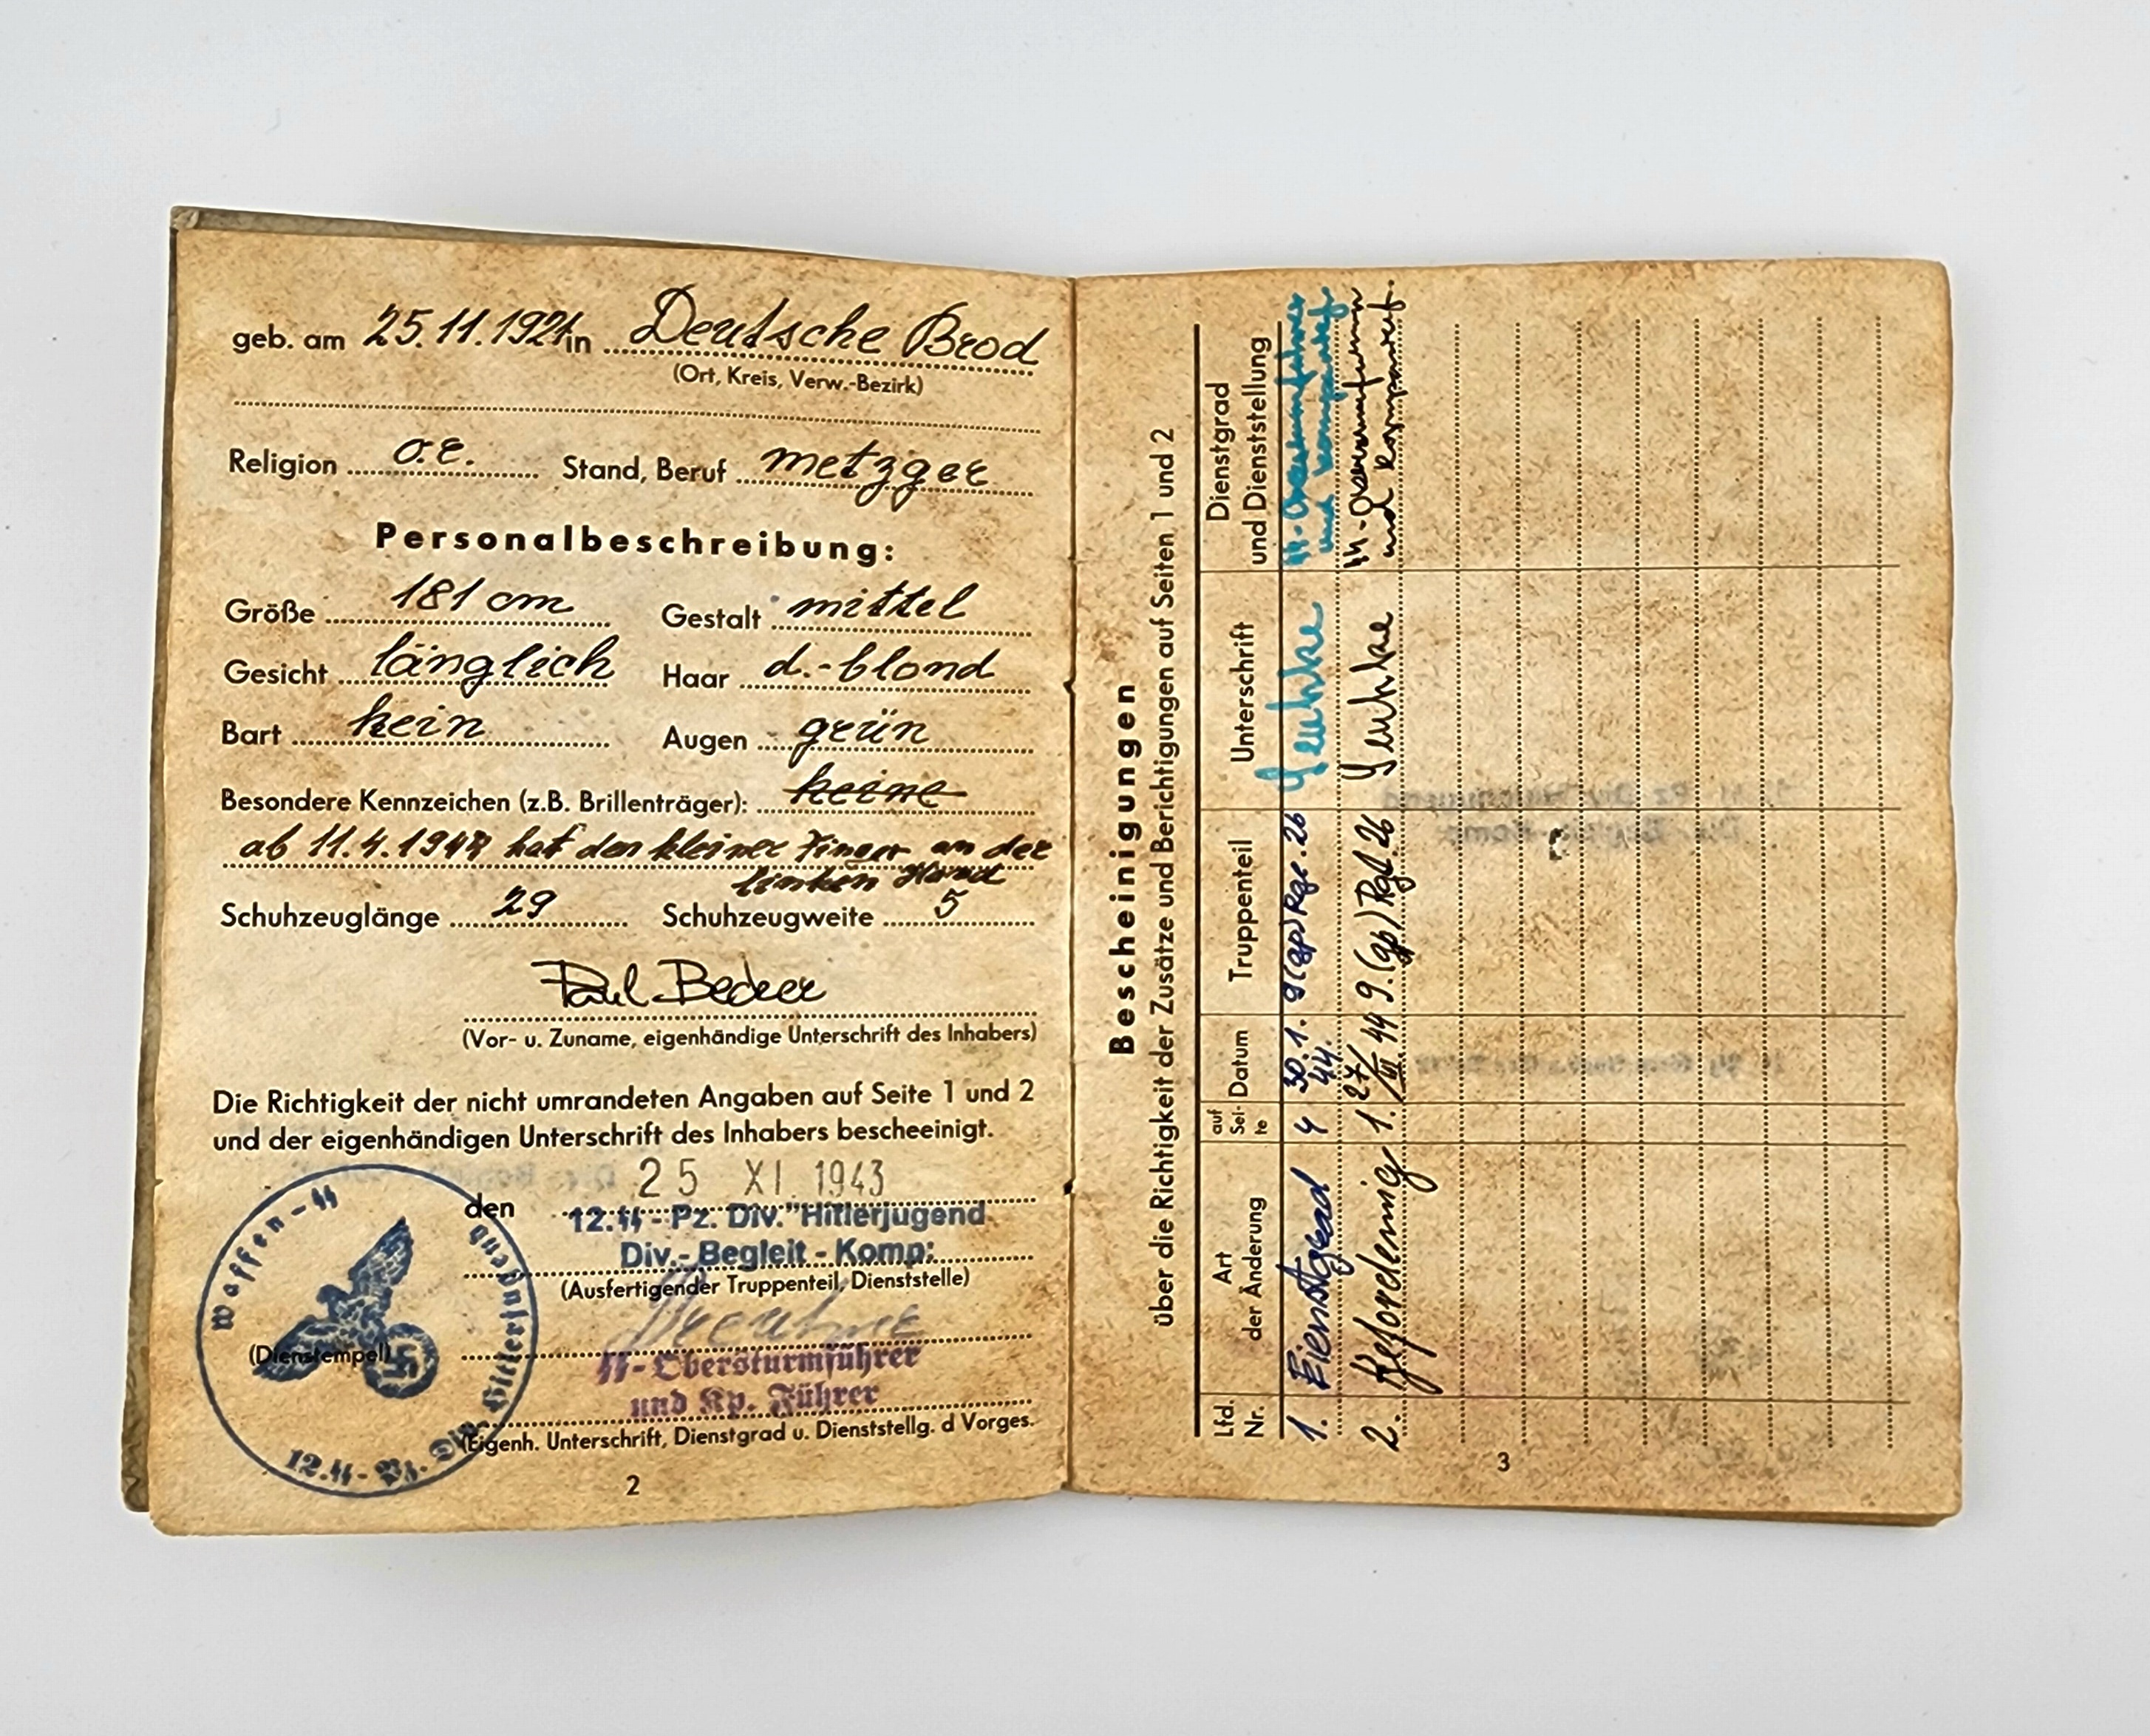 geb. am 25.11.1921 in Deutsche Brod
(Ort, Kreis, Verw.-Bezirk)
Religion o.e. Stand, Beruf metzger
Personalbeschreibung:
Größe 181 cm Gestalt mittel
Gesicht länglich Haar d.-blond
Bart kein Augen grün
Besondere Kennzeichen (z.B. Brillenträger): keine
ab 11.4.1944 hat den kleiner Finger an der
linken Hand
Schuhzeuglänge 29 Schuhzeugweite 5
Paul Becker
(Vor- u. Zuname, eigenhändige Unterschrift des Inhabers)
Die Richtigkeit der nicht umrandeten Angaben auf Seite 1 und 2
und der eigenhändigen Unterschrift des Inhabers bescheeinigt.
den 25 XI. 1943
12.SS-Pz. Div."Hitlerjugend
Div.-Begleit-Komp:
(Ausfertigender Truppenteil, Dienststelle)
Waffen-SS
12.SS-Pz.-Div. Hitlerjugend
(Dienstempel)
SS-Obersturmführer
und Kp. Führer
(Eigenh. Unterschrift, Dienstgrad u. Dienststellg. d Vorges.
2
Bescheinigungen
über die Richtigkeit der Zusätze und Berichtigungen auf Seiten 1 und 2
Lfd. Nr. Art der Änderung auf Sei-te Datum Truppenteil Unterschrift Dienstgrad und Dienststellung
1. Eienstgrad 4 30.1.44. 9(gp)Rgt.26
2. Befordernig 1. 27/III 44 9.(gp)Rgt.26
3